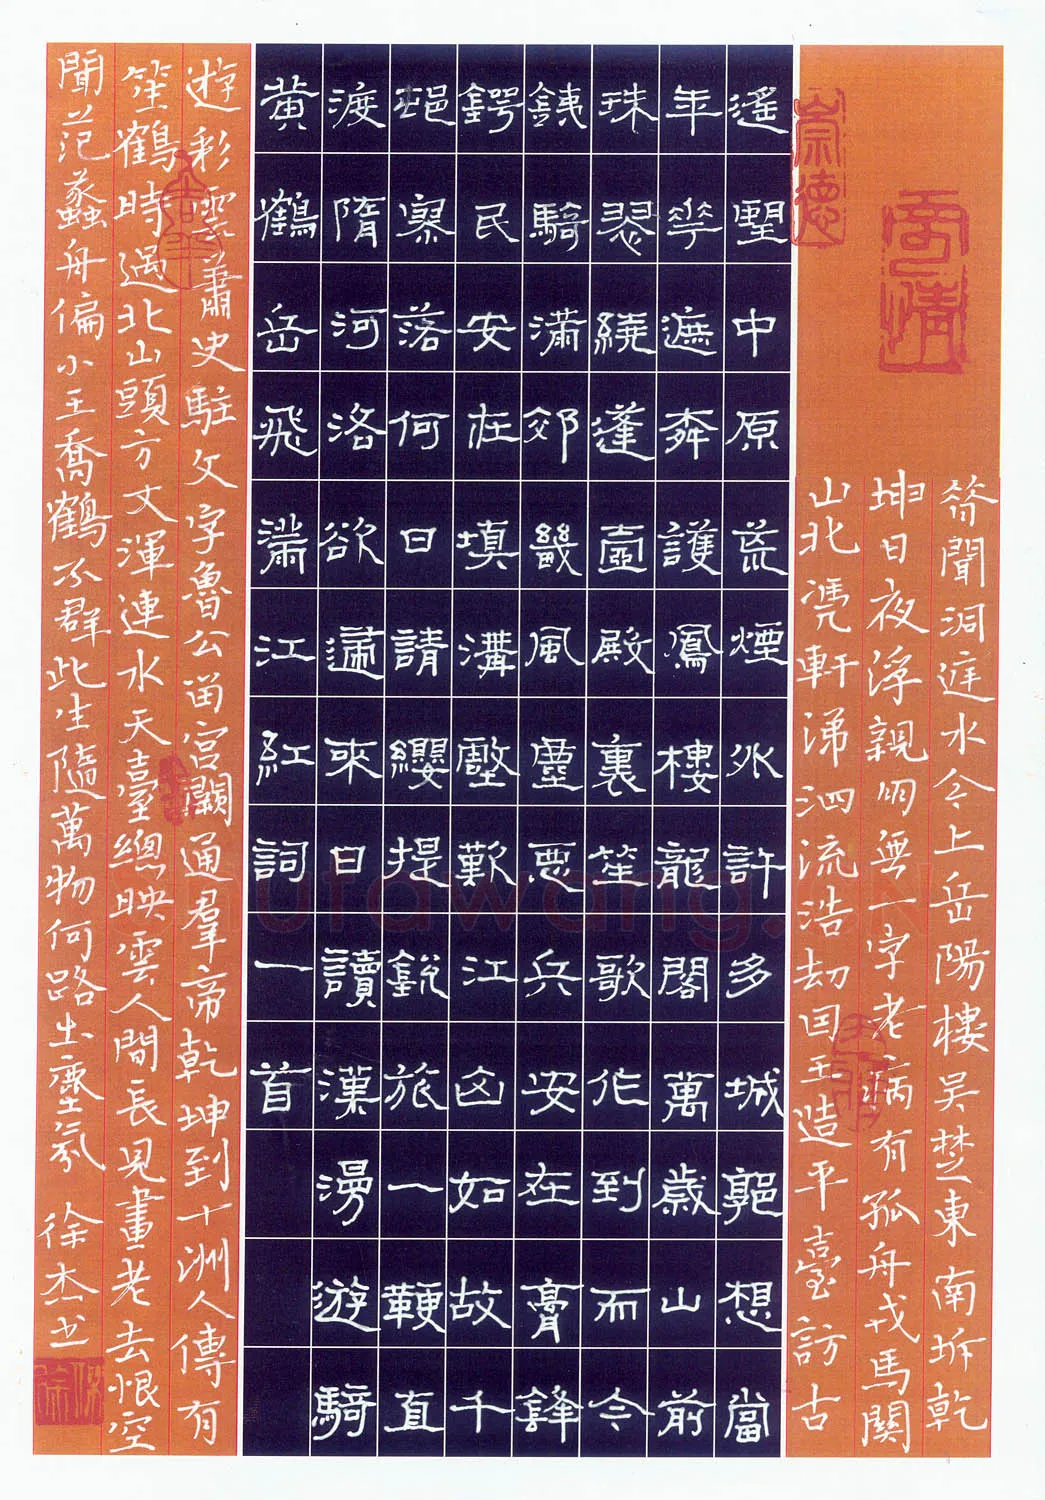 昔聞洞庭水今上岳陽樓吴楚東南坼乾
坤日夜浮親朋無一字老病有孤舟戎馬關
山北凭軒涕泗流浩劫因王造平臺訪古
遥望中原荒煙外許多城郭想當
年花遮奔護鳳樓龍閣萬歲山前
珠翠繞蓬壺殿裏笙歌作到而今
鐵騎滿郊畿風塵惡兵安在膏鋒
鍔民安在填溝壑歎江山如故千
邨寥落何日請纓提鋭旅一鞭直
渡隋河洛欲遞來日讀漢漫遊騎
黃鶴岳飛滿江紅詞一首
遊彩雲蕭史駐文字魯公留宮闕通羣帝乾坤到十洲人傳有
笙鶴時過北山頭方丈渾連水天臺總映雲人間長見畫老去恨空
聞范蠡舟偏小王喬鶴不群此生隨萬物何路出塵氛 徐杰书
崇德
shufawang.CN